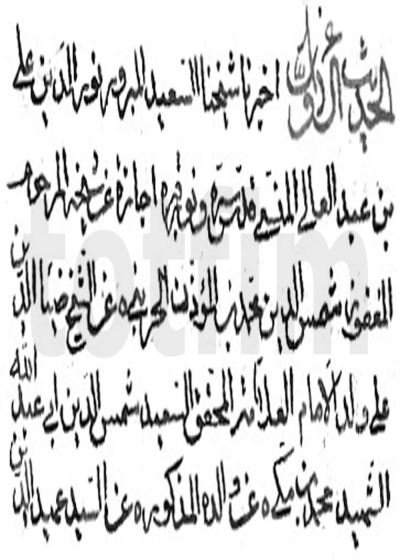 الحديث الاول اخبرنا شيخنا السعيد المبرور نور الدين علي
بن عبد العالي قدس سره ونور قبره اجازة عن شيخه المرحوم
المغفور شمس الدين محمد بن المؤذن الجزيني عن الشيخ ضياء الدين
علي ولد الامام العلامة المحقق السعيد شمس الدين ابي عبد الله
الشهيد محمد بن مكي عن والده المذكور عن السيد عميد الدين